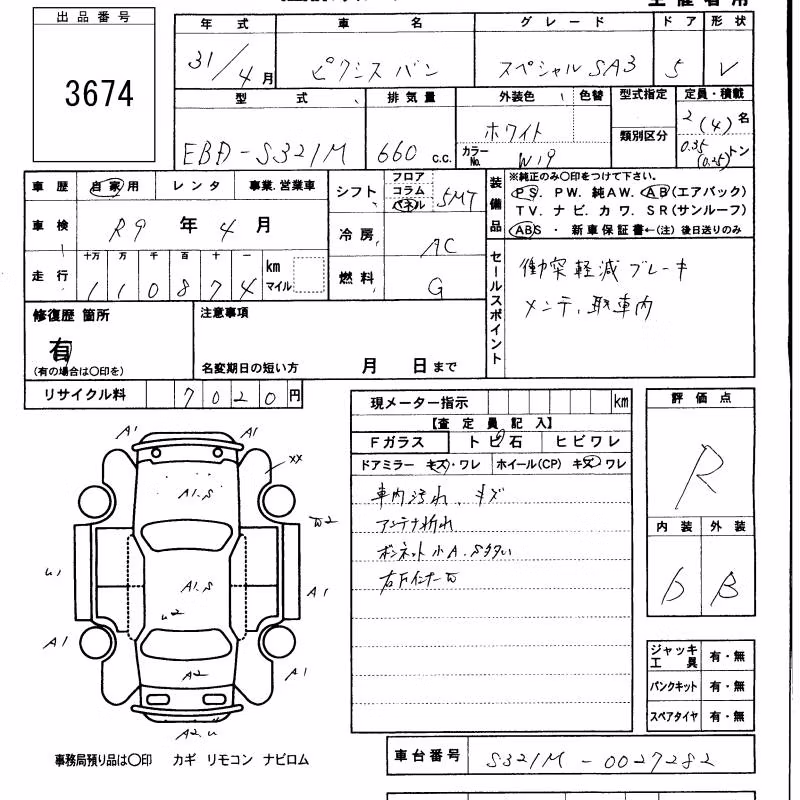 出品番号
3674
年式 車名 グレード ドア 形状
31/4月 ピクシスバン スペシャルSA3 5 V
型式 排気量 外装色 色替 型式指定 定員・積載
類別区分
EBD-S321M 660 c.c. ホワイト 2(4)名
カラーNo. W19 0.35(0.25)トン
車歴 自家用 レンタ 事業.営業車
車検 R9年4月
走行 十万 万 千 百 十 一 km マイル
110874
シフト フロア コラム パネル 5MT
冷房 AC
燃料 G
装備品
※純正のみ○印をつけて下さい。
PS. PW. 純AW. AB(エアバック)
TV. ナビ. カワ. SR(サンルーフ)
ABS ・ 新車保証書←(注) 後日送りのみ
セールスポイント
衝突軽減ブレーキ
メンテ、取車内
修復歴 箇所
有
(有の場合は○印を)
注意事項
名変期日の短い方 月 日まで
リサイクル料 7020円
現メーター指示 km
【査定員記入】
Fガラス トビ石 ヒビワレ
ドアミラー キズ・ワレ ホイール(CP) キズ ワレ
車内汚れ、キズ
アンテナ折れ
ボンネット小A.S多い
評価点
R
内装 外装
D B
ジャッキ工具 有・無
パンクキット 有・無
スペアタイヤ 有・無
A1 A1
XX
A1.S
W2
U1 A1.S A1
U2
A1 A2 A1
A2.U
事務局預り品は○印 カギ リモコン ナビロム
車台番号 S321M-0027282